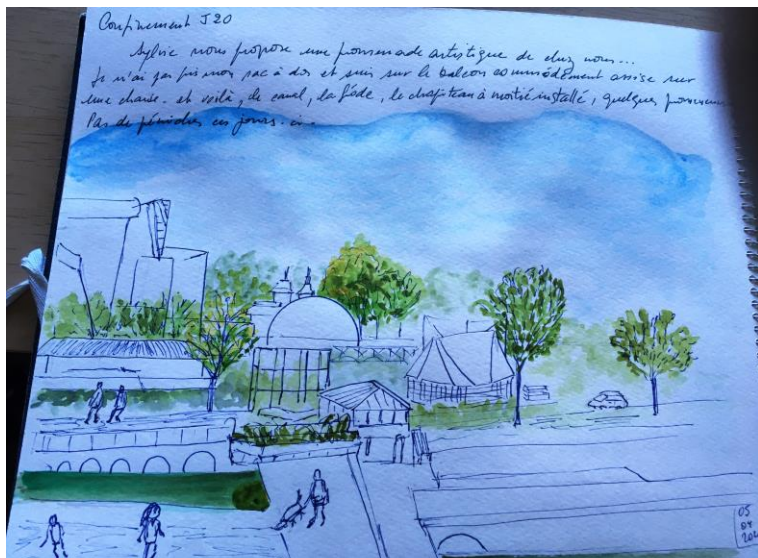 Confinement J20
Sylvie nous propose une promenade artistique de chez nous...
Je n'ai pas pris mon sac à dos et suis sur le balcon commodément assise sur
une chaise. et voilà, le canal, la Géode, le chapiteau à moitié installé, quelques promeneurs
Pas de péniches ces jours-ci...
05
04
202